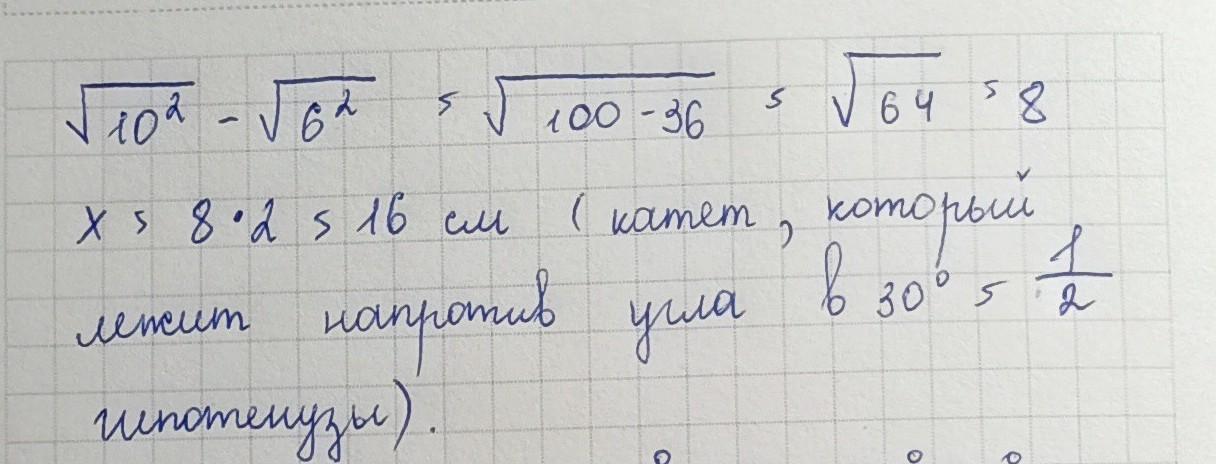 √10² - √6² = √100-36 = √64 = 8
x = 8·2 = 16 см (катет, который
лежит напротив угла в 30° = 1/2
гипотенузы).